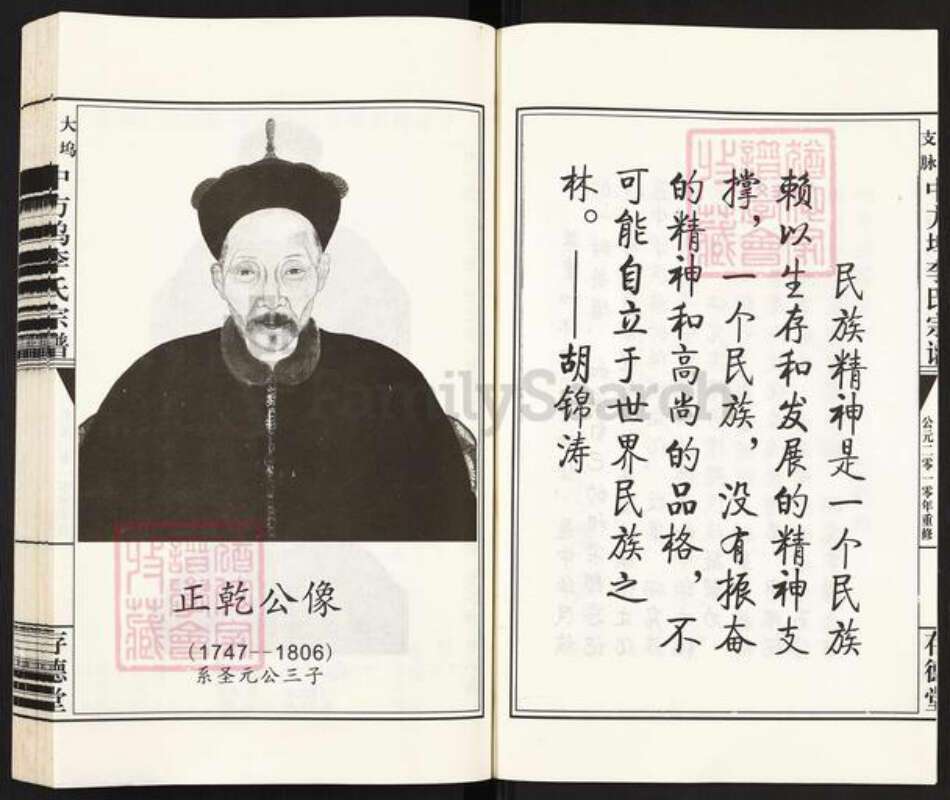 支脉
中方坞李氏宗谱
公元二零一零年重修
存德堂
民族精神是一个民族
赖以生存和发展的精神支
撑，一个民族，没有振奋
的精神和高尚的品格，不
可能自立于世界民族之
林。——胡锦涛
FamilySearch
正乾公像
(1747—1806)
系圣元公三子
大坞
中方坞李氏宗谱
存德堂